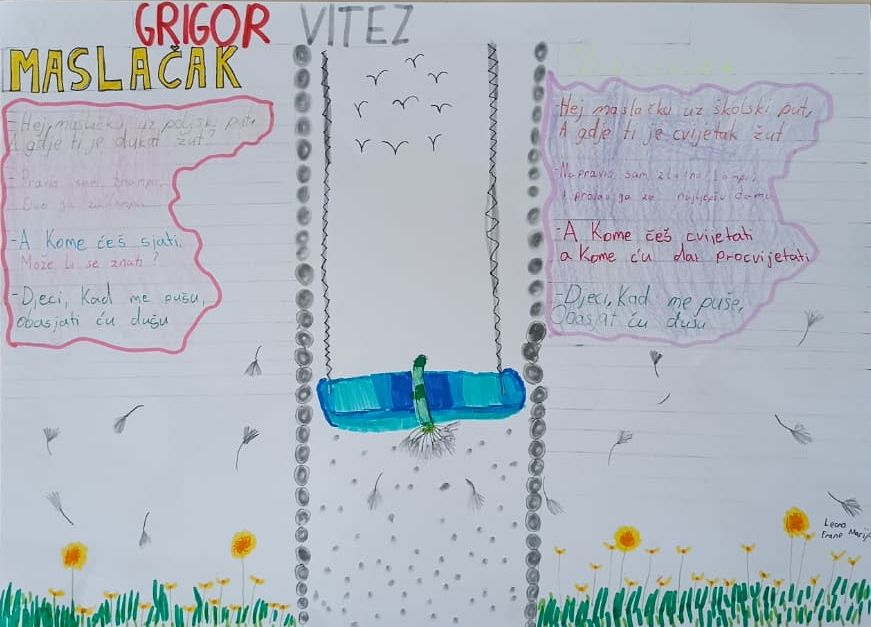 GRIGOR VITEZ
MASLAČAK
-Hej, maslačku uz poljski put,
A gdje ti je dukat žut?
-A Kome ćeš sjati,
Može li se znati?
-Djeci, Kad me pušu,
obasjati ću dušu
-Hej maslačku uz školski put,
A gdje ti je cvijetak žut
-Napravio sam zlatnu lampu,
-A Kome ćeš cvijetati
a Kome ću dat procvijetati
-Djeci, Kad me puše,
Obasjat ću dušu
Leona
Frane Marija